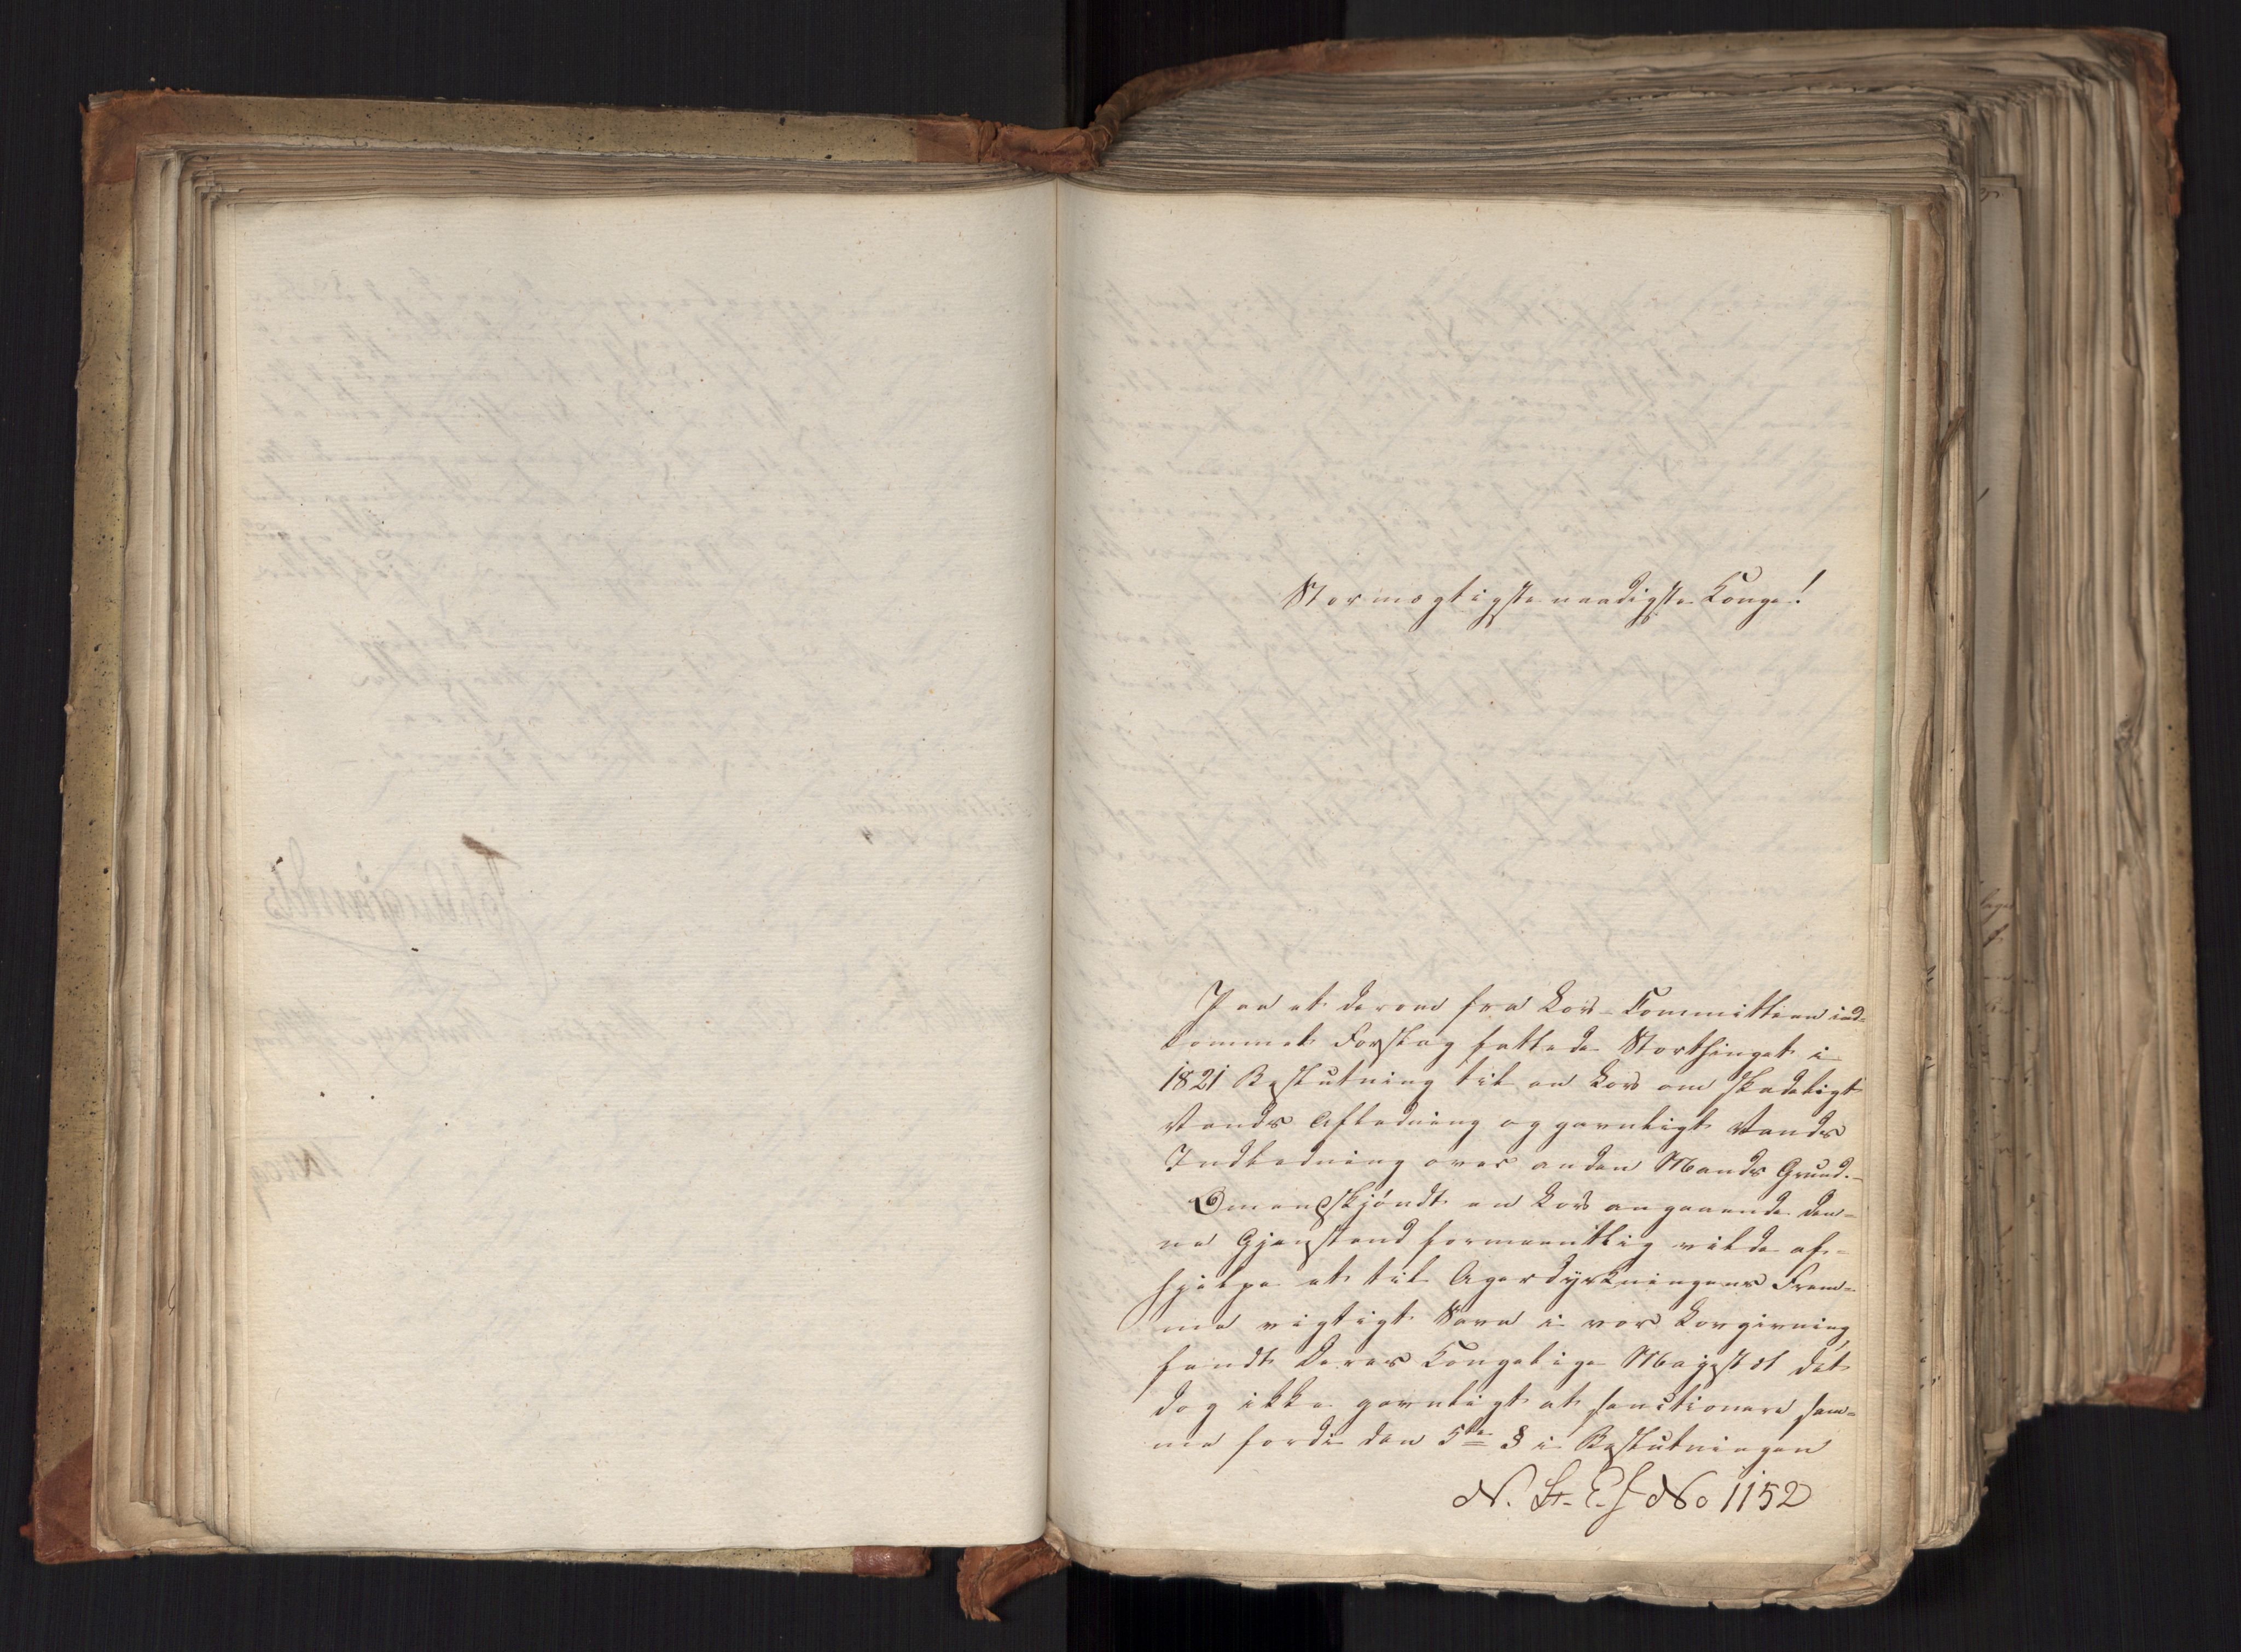 Stormægtigste naadigste Konge!
Paa et derom fra Lov-Committeen ind-
kommet Forslag fattede Storthinget i
1821 Beslutning til en Lov om skadeligt
Vands Afledning og gavnligt Vands
Indledning over anden Mands Grund.-
Omendskjöndt en Lov angaaende den-
ne Gjenstand formeentlig vilde af-
hjelpe et til Agerdyrkningens Frem-
me vigtigt Savn i vor Lovgivning,
fandt Deres Kongelige Majestæt det
dog ikke gavnligt at sanctionere sam-
me fordi den 5te § i Beslutningen
N. St. E. J No 1152